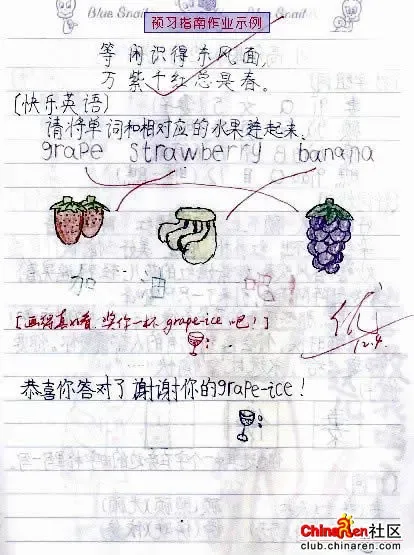 Blue Snail
Blue Snail
预习指南作业示例
等闲识得东风面,
万紫千红总是春。
[快乐英语]
请将单词和相对应的水果连起来.
grape strawberry banana
加油吧!
[画得真好看,奖你一杯grape-ice吧!]
优
12.4.
恭喜你答对了谢谢你的grape-ice!
ChinaRen社区
club.chinaren.com